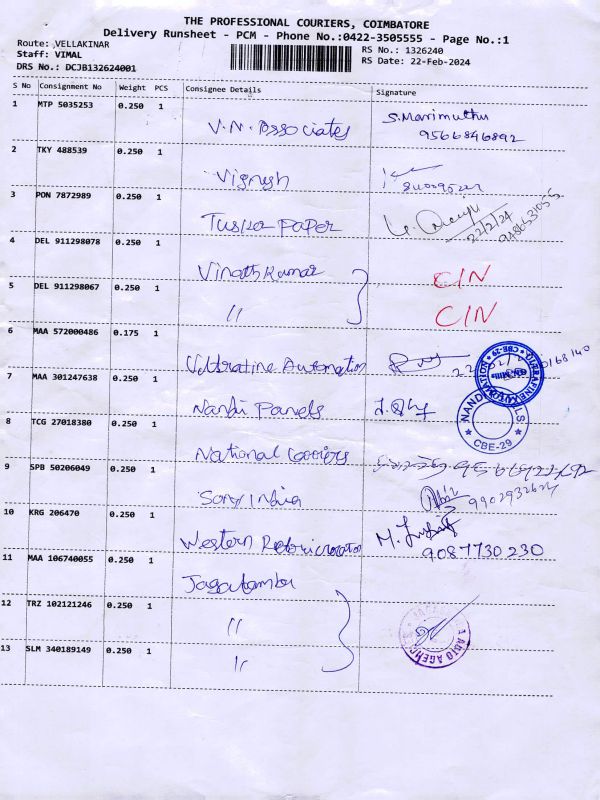 THE PROFESSIONAL COURIERS, COIMBATORE
Delivery Runsheet - PCM - Phone No.:0422-3505555 - Page No.:1
Route: ,VELLAKINAR
Staff: VIMAL
DRS No.: DCJB132624001
RS No.: 1326240
RS Date: 22-Feb-2024
S No Consignment No Weight PCS Consignee Details Signature
1 MTP 5035253 0.250 1
V.N. Associates S.Marimuthu
9566846892
2 TKY 488539 0.250 1
Vignesh
3 PON 7872989 0.250 1
Tusker Paper 22/2/24
4 DEL 911298078 0.250 1
Vinoth Kumar C/N
5 DEL 911298067 0.250 1
〃 C/N
6 MAA 572000486 0.175 1
Automation
7 MAA 301247638 0.250 1
Nandi Panels
CBE-29
8 TCG 27018380 0.250 1
National Couriers
9 SPB 50206049 0.250 1
Sony India
10 KRG 206470 0.250 1
Western M.
9087730230
11 MAA 106740055 0.250 1
Jagatambu
12 TRZ 102121246 0.250 1
〃
13 SLM 340189149 0.250 1
〃